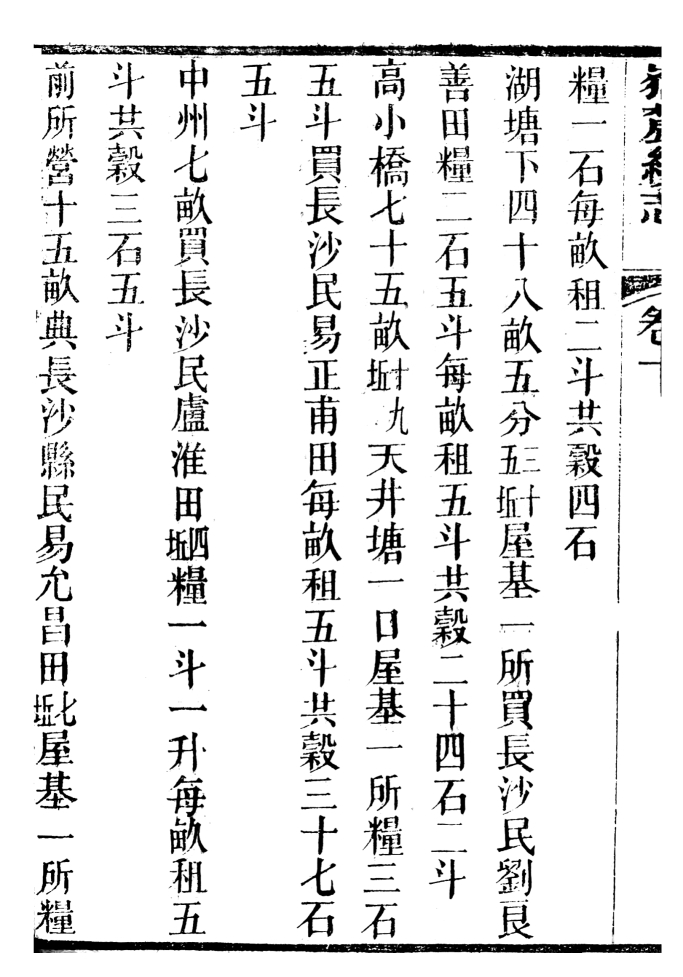 嶽麓續志　卷一
糧二石每畝租二斗共穀四石
湖塘下四十八畝五分三十五坵屋基一所買長沙民劉艮
善田糧二石五斗每畝租五斗共穀二十四石二斗
高小橋七十五畝十九坵天井塘一口屋基一所糧三石
五斗買長沙民易正甫田每畝租五斗共穀三十七石
五斗
中州七畝買長沙民盧淮田四坵糧一斗一升每畝租五
斗共穀三石五斗
前所營十五畝典長沙縣民易允昌田七坵屋基一所糧